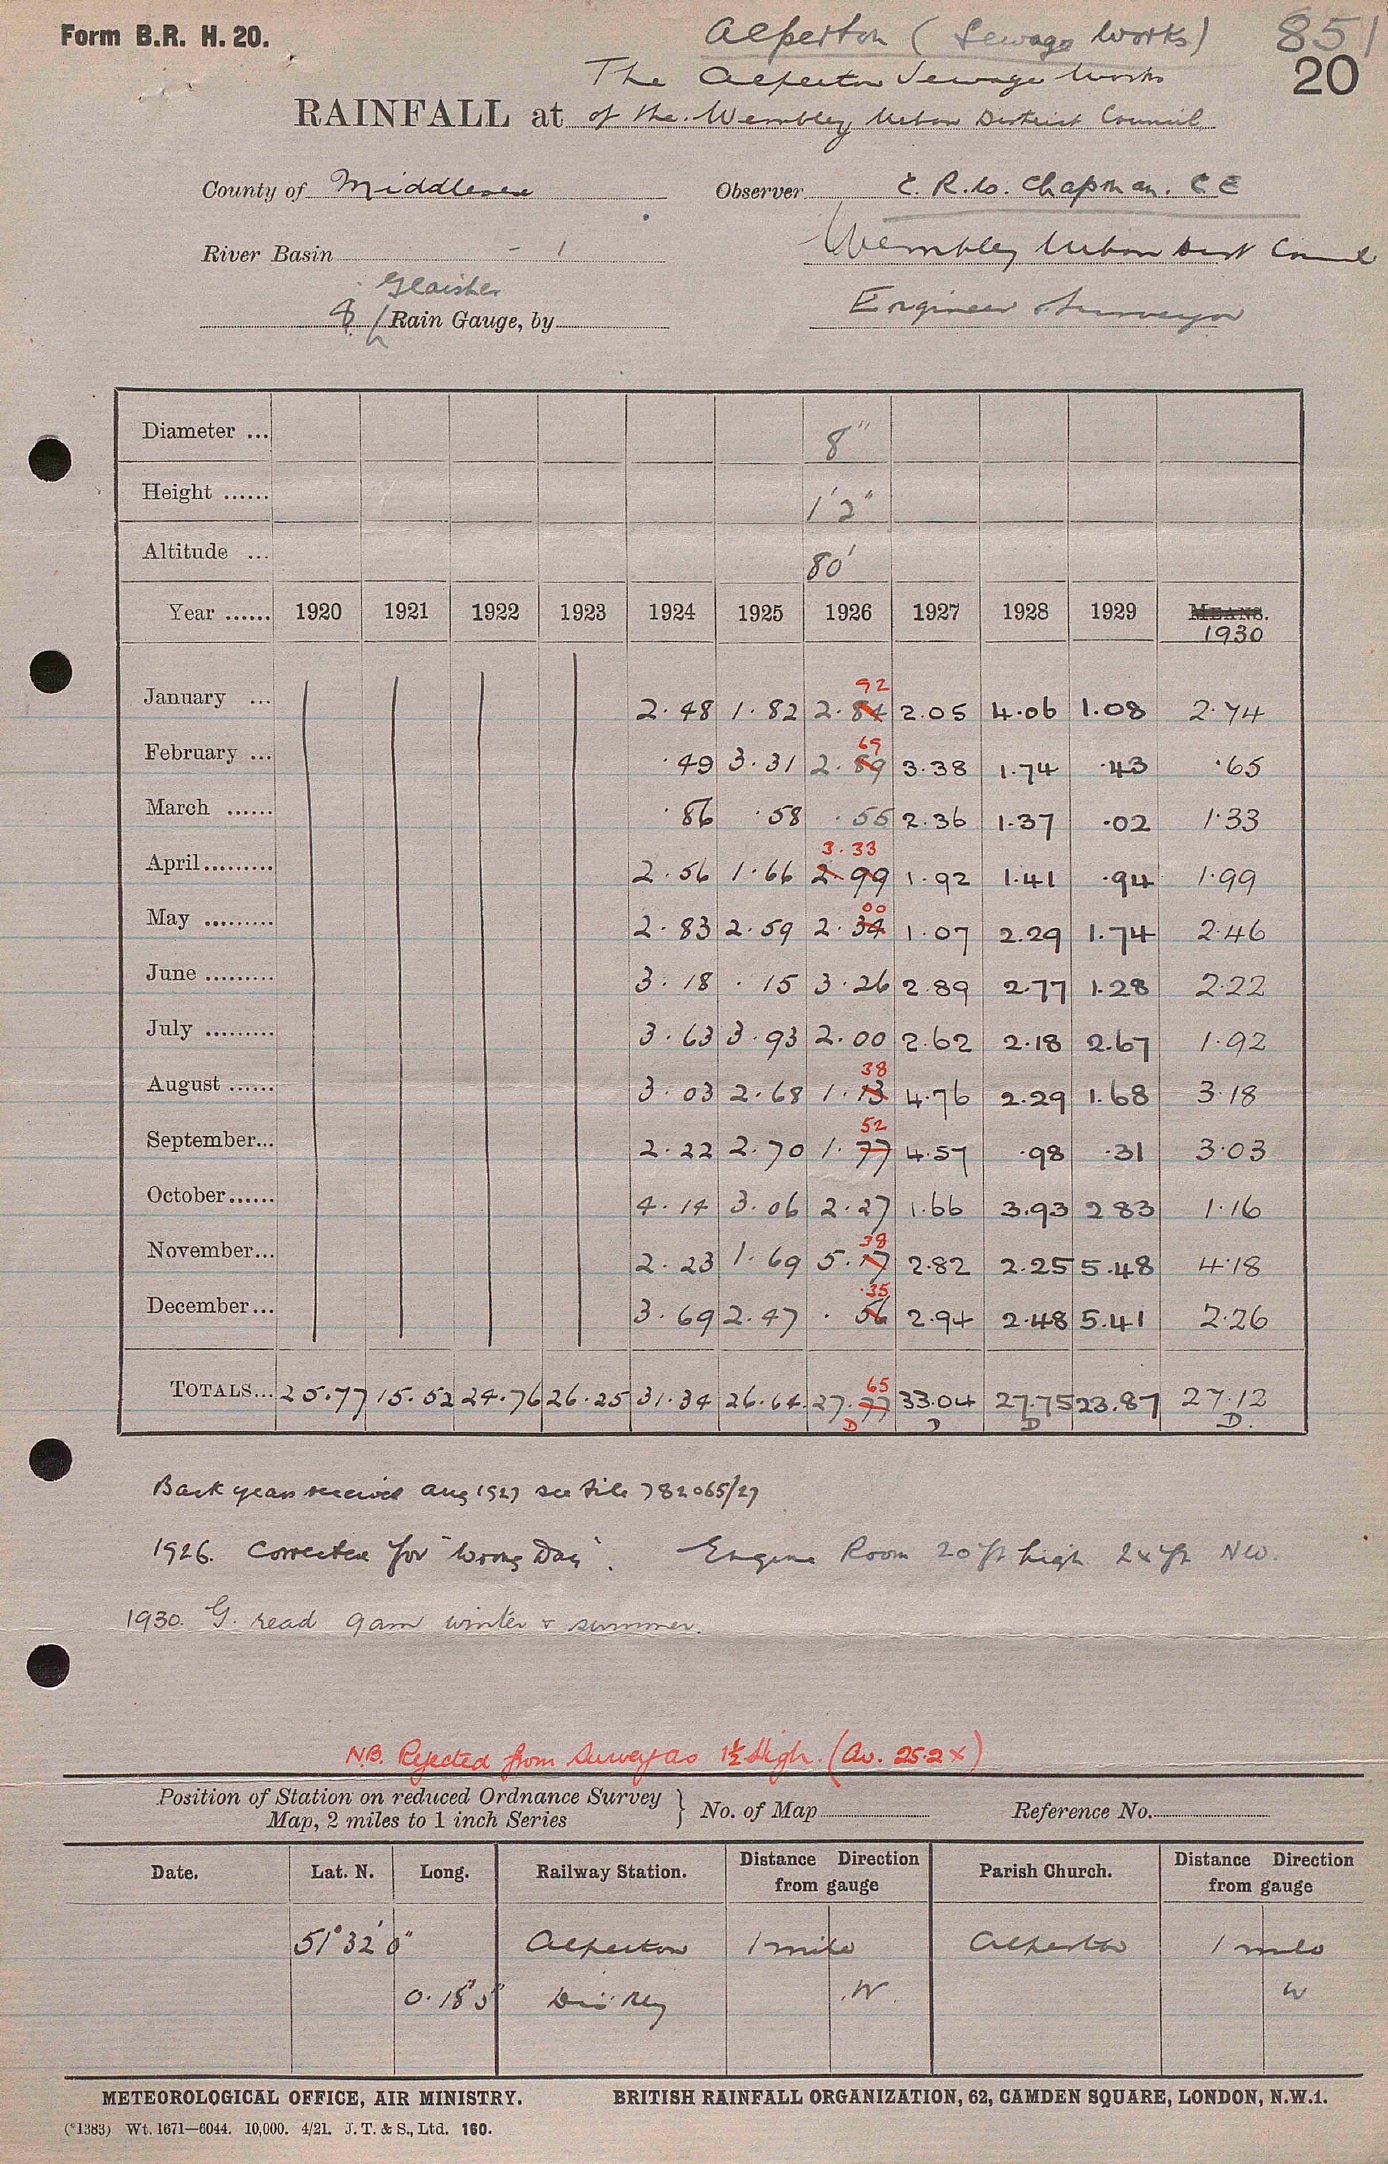 Form B.R. H. 20.
Alperton (Sewage Works) 851
20
The Alperton Sewage Works
RAINFALL at of the Wembley Urban District Council
County of Middlesex Observer C. R. W. Chapman. C E
River Basin - 1 Wembley Urban Dist Council
Glaisher
Rain Gauge, by Engineer & Surveyor
Diameter ... 8"
Height ...... 1'2"
Altitude ... 80'
Year ...... 1920 1921 1922 1923 1924 1925 1926 1927 1928 1929 MEANS.
1930
92
January ... 2.48 1.82 2.84 2.05 4.06 1.08 2.74
69
February ... .49 3.31 2.89 3.38 1.74 .43 .65
March ...... .86 .58 .55 2.36 1.37 .02 1.33
3.33
April......... 2.56 1.66 2.99 1.92 1.41 .94 1.99
00
May ......... 2.83 2.59 2.34 1.07 2.29 1.74 2.46
June ......... 3.18 .15 3.26 2.89 2.77 1.28 2.22
July ......... 3.63 3.93 2.00 2.62 2.18 2.67 1.92
38
August ...... 3.03 2.68 1.13 4.76 2.29 1.68 3.18
52
September... 2.22 2.70 1.77 4.57 .98 .31 3.03
October...... 4.14 3.06 2.27 1.66 3.93 2 83 1.16
38
November... 2.23 1.69 5.17 2.82 2.25 5.48 4.18
.35
December... 3.69 2.47 .56 2.94 2.48 5.41 2.26
65
TOTALS... 25.77 15.52 24.76 26.25 31.34 26.64 27.77 33.04 27.75 23.87 27.12
D D D D.
Back years received Aug 1927 see file 782065/27
1926. Corrected for "Wrong Day". Engine Room 20 ft high 24 ft NW.
1930. G. read 9am winter & summer.
N.B. Rejected from Survey as 1½ High. (Av. 25.2x)
Position of Station on reduced Ordnance Survey
Map, 2 miles to 1 inch Series } No. of Map Reference No.
Date. Lat. N. Long. Railway Station. Distance Direction from gauge Parish Church. Distance Direction from gauge
51° 32' 0" Alperton 1 mile Alperton 1 mile
0.18' 5" Dis. Rly W W
METEOROLOGICAL OFFICE, AIR MINISTRY. BRITISH RAINFALL ORGANIZATION, 62, CAMDEN SQUARE, LONDON, N.W.1.
(*1383) Wt. 1671—6044. 10,000. 4/21. J. T. & S., Ltd. 160.